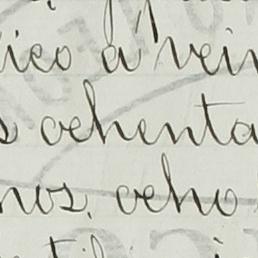 ico a vein
s ochenta
nos. ocho